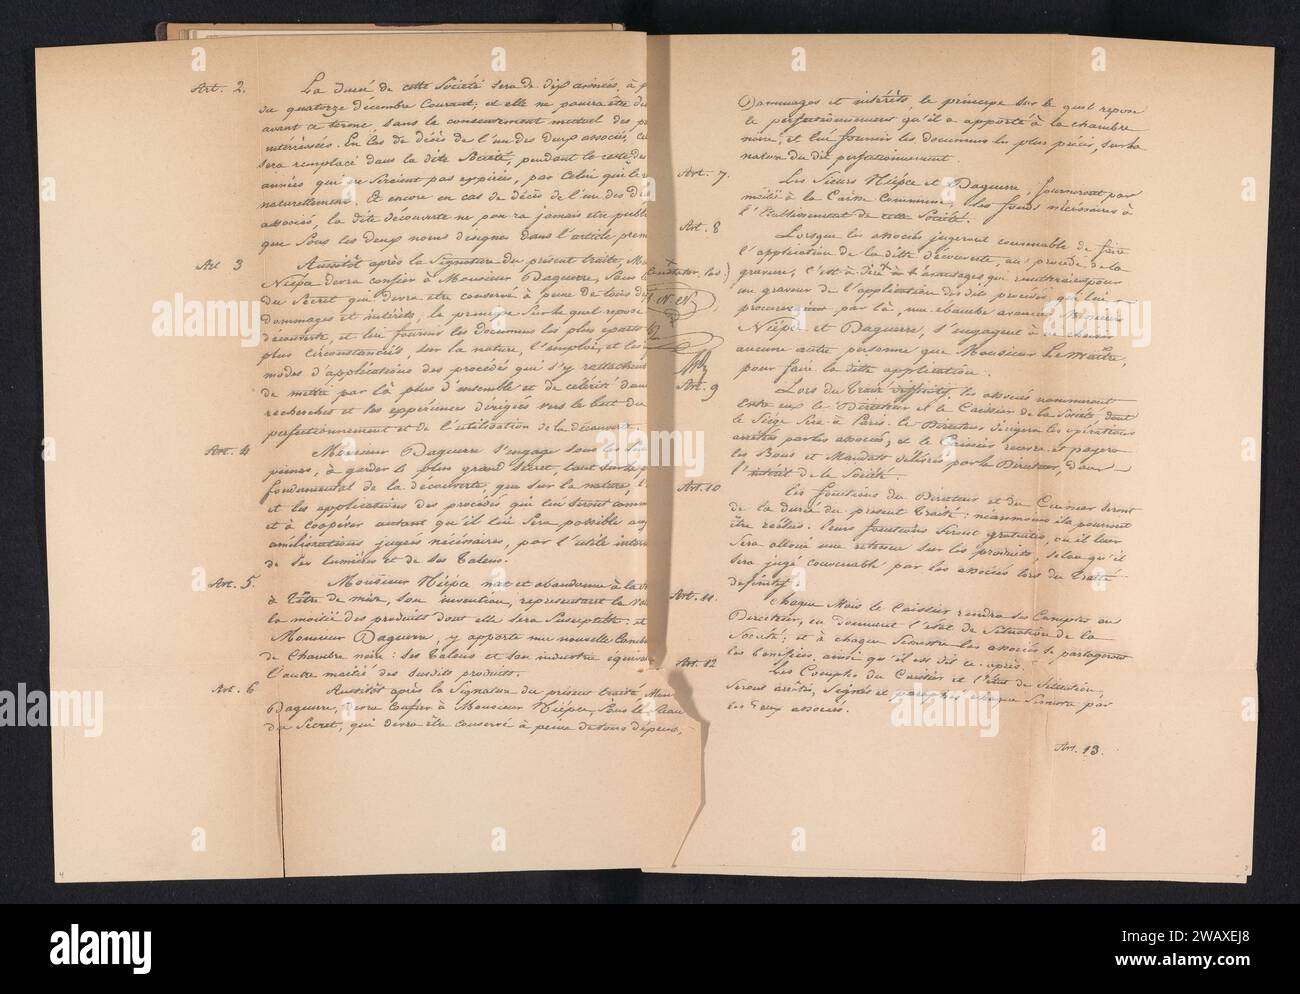 Art. 2. La durée de cette Société sera de dix années, à p
du quatorze décembre Courant; et elle ne pourra être du
avant ce terme, sans le consentement mutuel des p
intérressées. En Cas de décès de l'un des deux associés, ce
sera remplacé dans la dite Société, pendant le reste des
années qui ne seraient pas expirées, par Celui qui le
naturellement. Et encore en cas de décès de l'un des d
associés, la dite découverte ne pourra jamais etre publ
que Sous les deux noms désignés dans l'article prem
Art 3 Aussitôt après la Signature du présent traité, M
Niépce devra confier à Monsieur Daguerre, Sous
du Secret qui devra être conservé à peine de tous dé
dommages et intérêts, le principe Sur lequel repose
découverte, et lui fournir les documens les plus
plus circonstanciés, sur la nature, l'emploi, et les
modes d'applications des procédés qui s'y rattachent
de mettre par là plus d'ensemble et de célérité dans
recherches et les expériences dirigées vers le but du
perfectionnement et de l'utilisation de la découverte.
Art. 4 Monsieur Daguerre s'engage sous les
peines, à garder le plus grand Secret, tant sur le p
fondamental de la découverte, que sur la nature, l'
et les applications des procédés qui lui seront comm
et à coopérer autant qu'il lui Sera possible aux
améliorations jugées nécessaires, par l'utile inter
de ses lumières et de ses talens.
Art. 5 Monsieur Niépce met et abandonne à la
à titre de mise, son invention, représentant la va
la moitié des produits dont elle sera Susceptible; et
Monsieur Daguerre, y apporte une nouvelle Comb
de Chambre noire; ses talens et son industrie équiva
l'autre moitié des susdits produits.
Art. 6 Aussitôt après la Signature du présent traité, Mon
Daguerre, devra Confier à Monsieur Niépce, Sous le Sceau
du Secret, qui devra être Conservé à peine de tous dépens,
Dommages et intérêts, le principe sur lequel repose
le perfectionnement qu'il a apporté à la chambre
noire, et lui fournir les documens les plus précis, sur la
nature du dit perfectionnement.
Art. 7. Les Sieurs Niépce et Daguerre, fourniront par
moitié à la Caisse Commune, les fonds nécessaires à
l'établissement de cette Société.
Art. 8 Lorsque les associés jugeront convenable de faire
l'application de la dite découverte, au procédé de la
gravure, c'est-à-dire de constater les avantages qui resulteraient pour
un graveur de l'application des dits procédés qui lui
procureraient par là, une ébauche avancée, Messieurs
Niépce et Daguerre, s'engagent à ne choisir
aucune autre personne que Monsieur Lemaitre,
pour faire la dite application.
Art. 9 Lors du traité définitif, les associés nommeront
entre eux le Directeur et le Caissier de la Société dont
le Siège sera à Paris. Le Directeur dirigera les opérations
arrêtées par les associés, et le Caissier recevra et payera
les Bons et Mandats délivrés par le Directeur, dans
l'intérêt de la Société.
Art. 10 Les fonctions du Directeur et du Caissier seront
de la durée du présent Traité; néanmoins ils pourront
être réélus. leurs fonctions seront gratuites, ou il leur
sera alloué une retenue sur les produits, selon qu'il
sera jugé convenable par les associés lors du traité
définitif.
Art. 11. Chaque Mois le Caissier rendra ses Comptes au
Directeur, en donnant l'état de Situation de la
Société; et à chaque Semestre les associés se partageront
les bénéfices, ainsi qu'il est dit ci-après.
Art. 12 Les Comptes du Caissier et l'état de Situation,
seront arrêtés, Signés et paraphés chaque Semestre par
les deux associés.
Art. 13.
alamy
Image ID: 2WAXEJ8
www.alamy.com